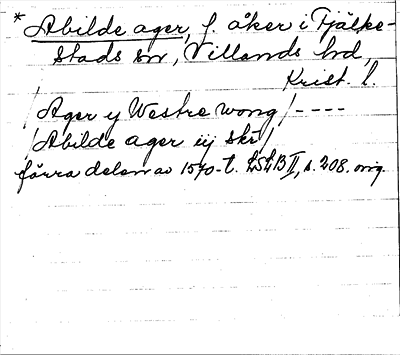 * Abilde ager, f. åker i Fjälke-
stads sn, Villands hd,
Krist. l.
/Ager y Westre wong/----
/Abilde ager iij skr/
förra delen av 1570-t. LSLB II, s. 208. orig.